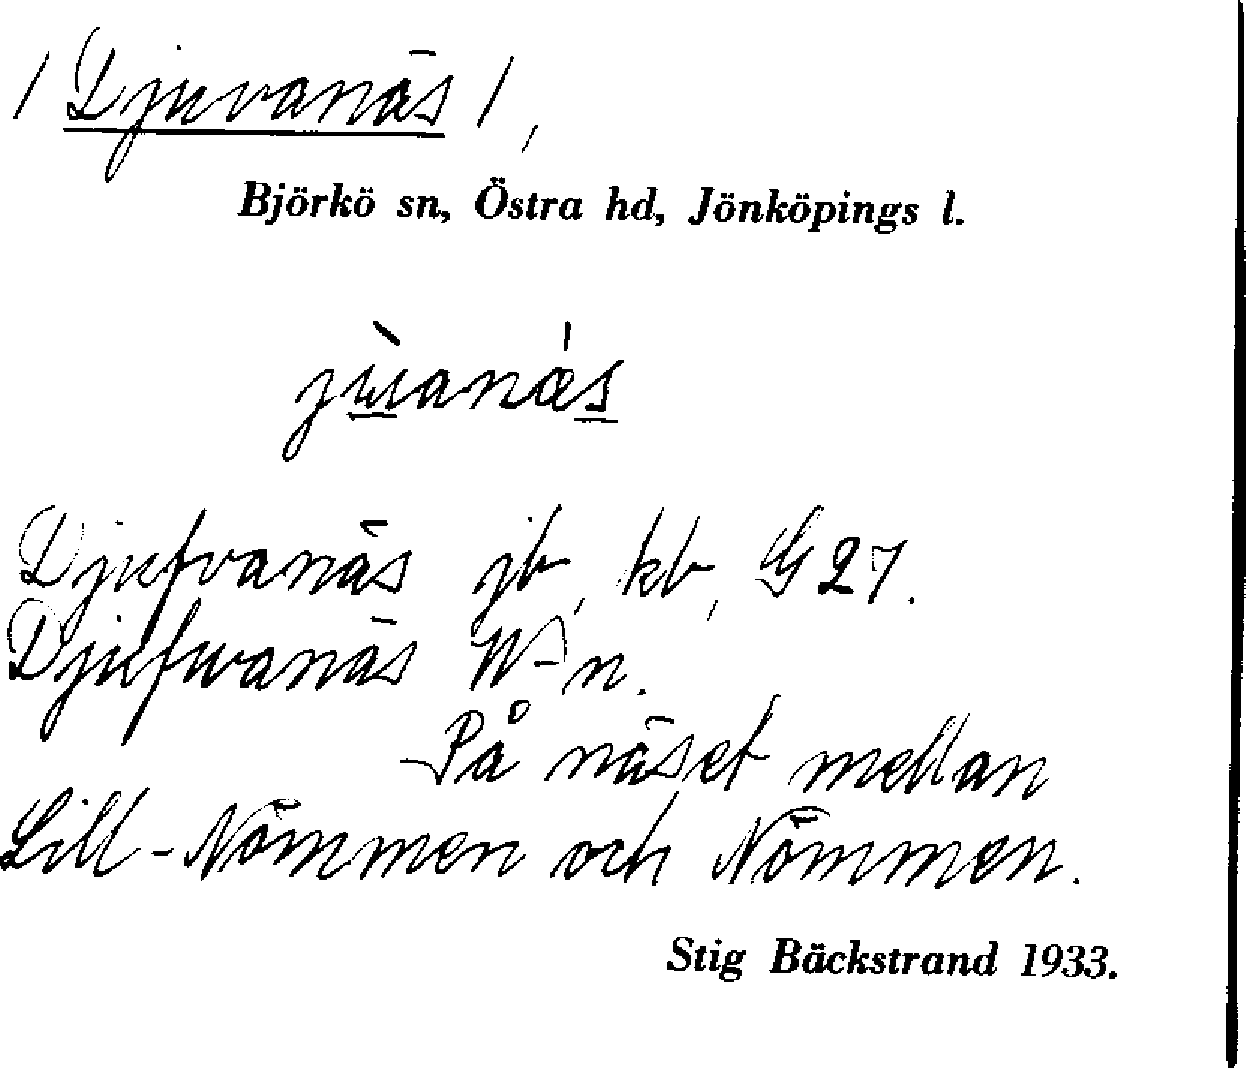 / Djuvanäs /,
Björkö sn, Östra hd, Jönköpings l.
jùanä́s
Djufvanäs jb, kb, G 27.
Djufwanäs W-n.
På näset mellan
Lill-Nömmen och Nömmen.
Stig Bäckstrand 1933.